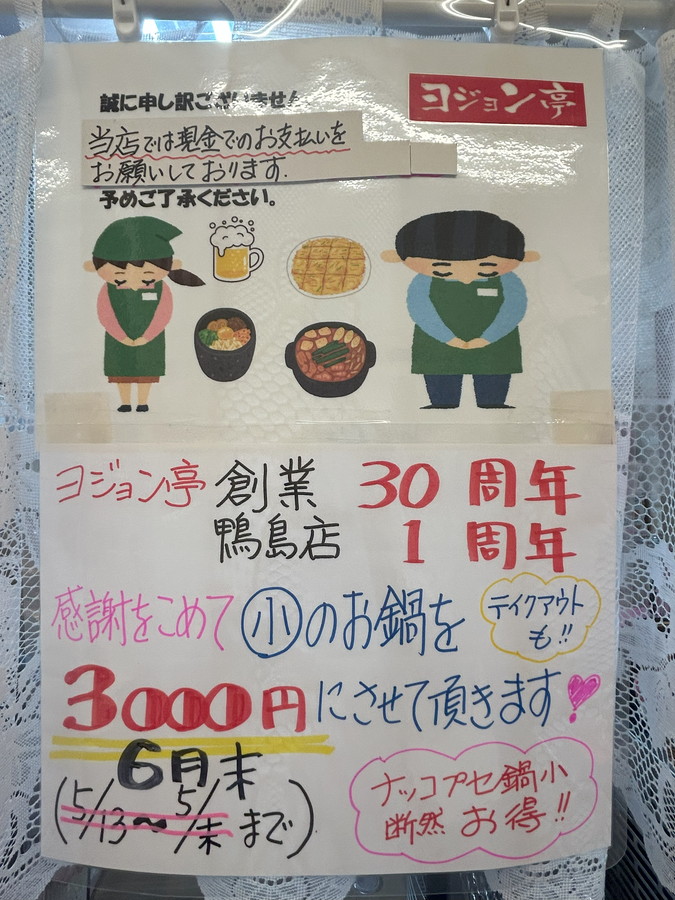 誠に申し訳ございません
ヨジョン亭
当店では現金でのお支払いを
お願いしております.
予めご了承ください。
ヨジョン亭 創業 30 周年
鴨島店 1 周年
感謝をこめて 小のお鍋を
テイクアウト
も!!
3000円にさせて頂きます
6月末
(5/13〜5/末 まで)
ナッコプセ鍋小
断然 お得!!